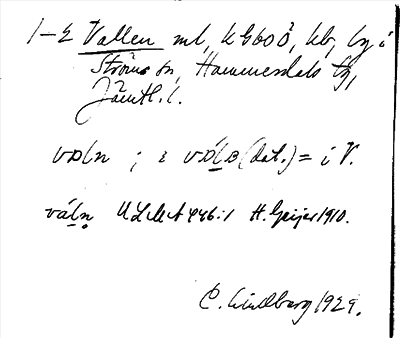 1–2 Vallen ml, kGboÖ, kb, by i
Ströms sn, Hammerdals tg,
Jämtl. l.
vɒln ; i vɒ́lɒ (dat.) = i V.
váln ULMA 446:1 H. Geijer 1910.
C. Lindberg 1929.